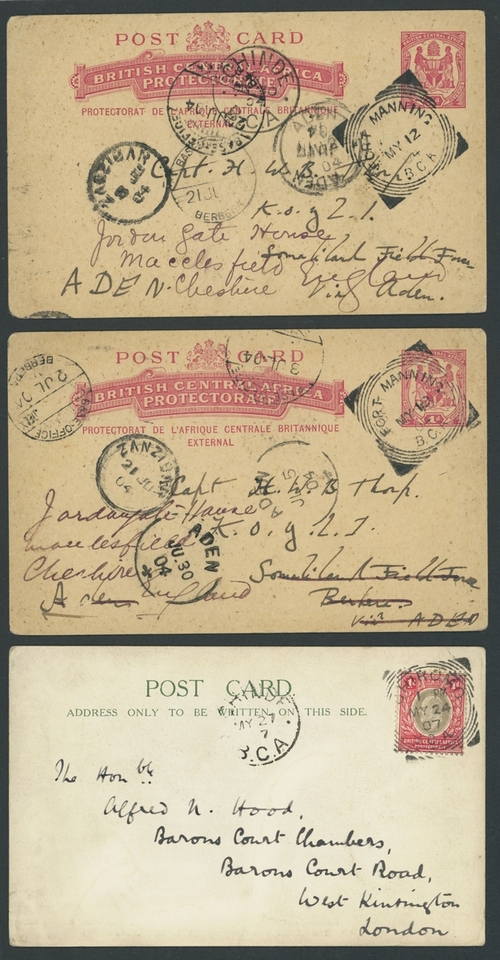 POST CARD
BRITISH CENTRAL AFRICA
PROTECTORATE
PROTECTORAT DE L'AFRIQUE CENTRALE BRITANNIQUE
EXTERNAL
CHINDE
B.C.A
MANNING
MY 12
B.C.A.
ADEN
04
ZANZIBAR
8
04
21 JU
BERBERA
Capt. H. W. B.
K. o y L I.
Jordan Gate House
Somaliland Field Force
Macclesfield England
ADEN. Cheshire Via Aden.
POST CARD
BRITISH CENTRAL AFRICA
PROTECTORATE
PROTECTORAT DE L'AFRIQUE CENTRALE BRITANNIQUE
EXTERNAL
FORT MANNING
MY 18
B.C.A.
BERBERA
2 JU 04
3 JL 04
ZANZIBAR
21
04
ADEN
ADEN
JU. 30
04
Capt H. W. B. Thorp.
Jordangate House
K. o y L I.
Macclesfield
Cheshire
Somaliland Field Force
Aden England Berbera.
via ADEN
POST CARD
ADDRESS ONLY TO BE WRITTEN ON THIS SIDE.
CHINDE
MY 27
7
B.C.A
MY 24
07
BRITISH CENTRAL AFRICA
The Honble
Alfred N. Hood,
Barons Court Chambers,
Barons Court Road,
West Kinsington
London